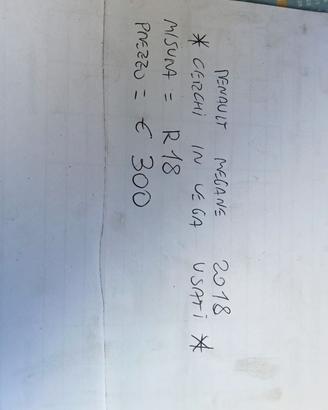 RENAULT MEGANE 2018
* CERCHI IN LEGA USATI *
MISURA = R18
PREZZO = € 300